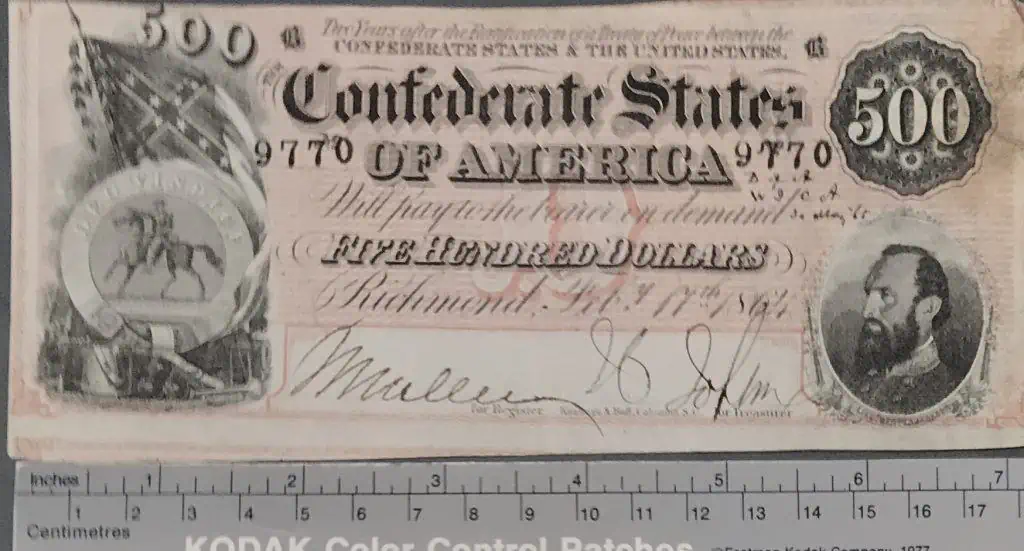 500
Two Years after the Ratification of a Treaty of Peace between the
CONFEDERATE STATES & THE UNITED STATES.
500
Confederate States
9770 OF AMERICA 9770
Will pay to the bearer on demand
FIVE HUNDRED DOLLARS
Richmond, Feb.y 17th 1864
for Register Keatinge & Ball, Columbia, S.C. for Treasurer
Inches 1 2 3 4 5 6 7
1 2 3 4 5 6 7 8 9 10 11 12 13 14 15 16 17
Centimetres
KODAK Color Control Patches ©Eastman Kodak Company, 1977